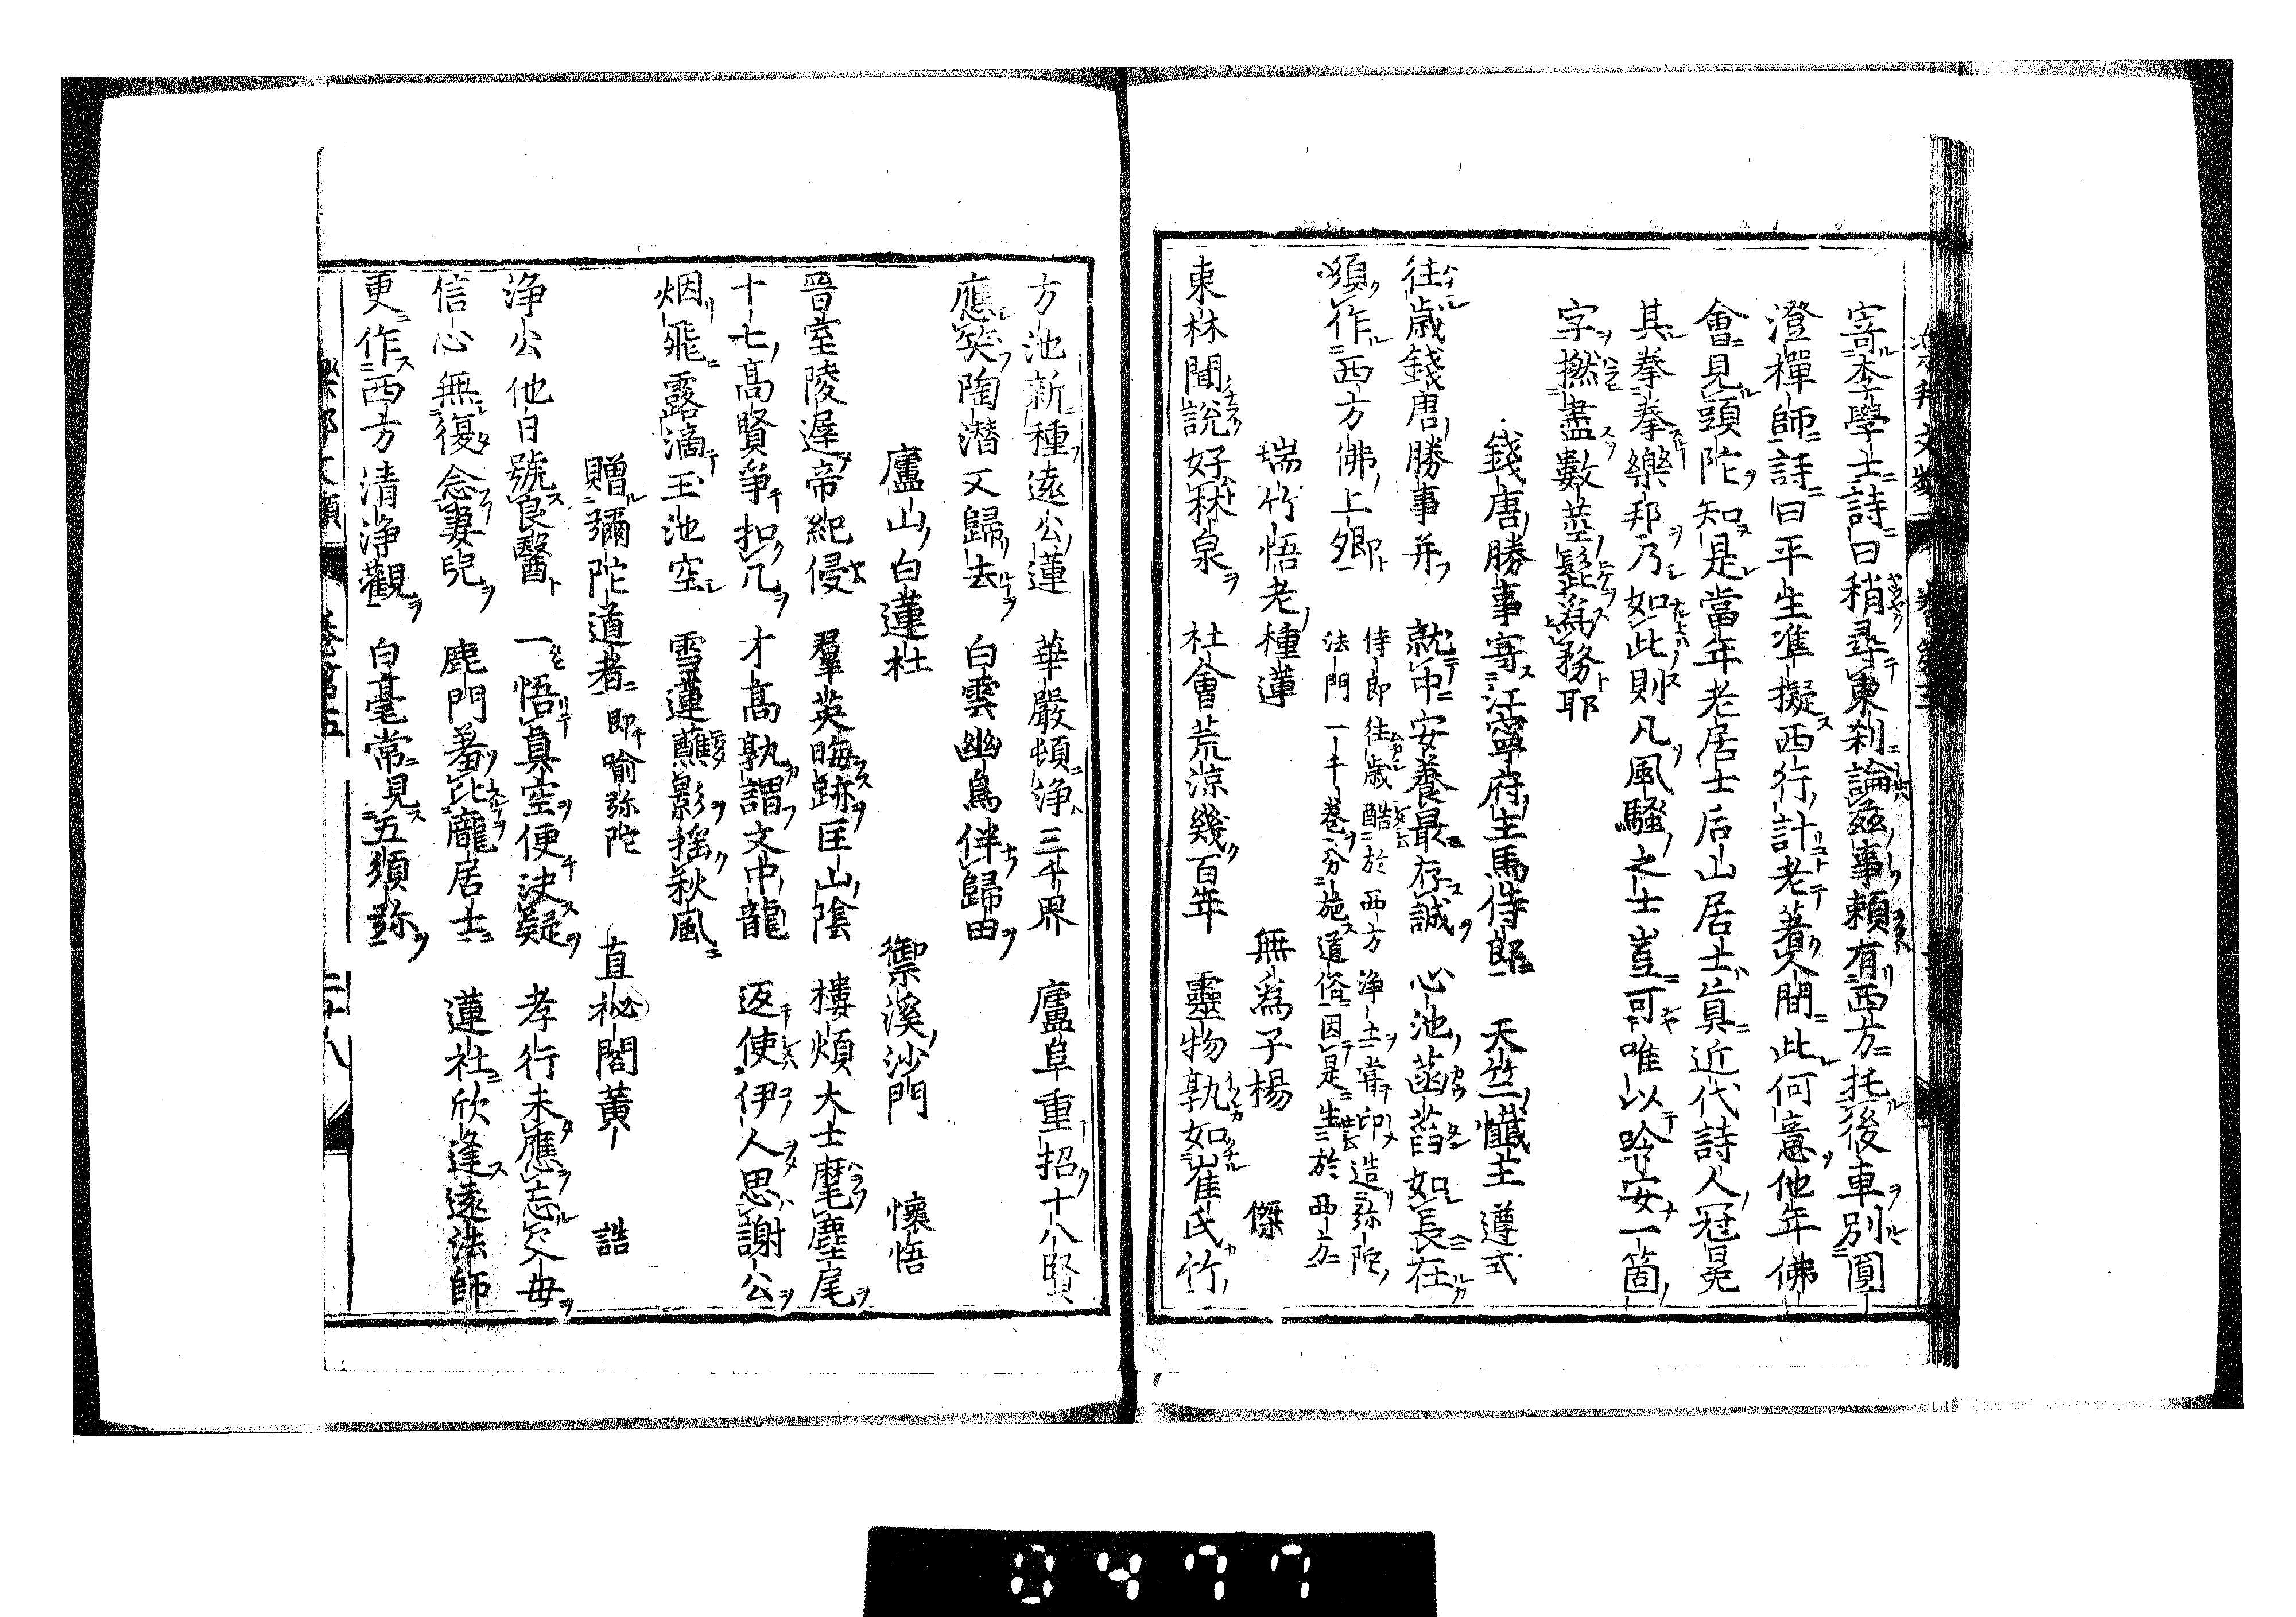 寄李學士詩曰稍尋東刹論茲事頼有西方托後車別圓
澄禪師詩曰平生準擬西行計老著人間此何意他年佛
會見頭陀知是當年老居士后山居士真近代詩人冠冕
其拳拳樂邦乃如此則凡風騷之士豈可唯以吟安一箇
字撚盡數莖髭為務耶
錢唐勝事寄江寧府主馬侍郎 天竺懺主 遵式
往歳錢唐勝事并 就中安養最存誠 心池菡萏如長在
須作西方佛上卿 侍郎往歳酷於西方浄土甞印造弥陀
法門一千巻分施道俗因是生於西方
瑞竹悟老種蓮 無為子楊 傑
東林聞說好林泉 社會荒涼幾百年 靈物孰如崔氏竹
方池新種遠公蓮 華嚴頓淨三千界 廬阜重招十八賢
應笑陶潛又歸去 白雲幽鳥伴歸田
廬山白蓮社 禦溪沙門 懷悟
晉室陵遲帝紀侵 羣英晦跡匡山陰 樓煩大士麾塵尾
十七髙賢爭扣几 才髙孰謂文中龍 返使伊人思謝公
烟飛露滴玉池空 雪蓮蘸影揺秋風
贈彌陀道者 即喻弥陀 直祕閣黄 誥
浄公他日號良醫 一悟真空便決疑 孝行未應忘父母
信心無復念妻兒 鹿門羞比龐居士 蓮社欣逢遠法師
更作西方清浄觀 白毫常見五須弥
樂邦文類 巻第五 二十八